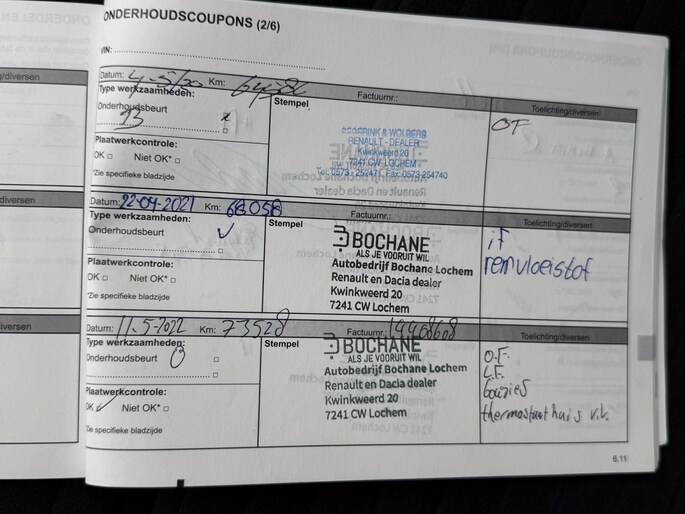 ONDERHOUDSCOUPONS (2/6)
VIN:
ONDERDELEN
en/diversen
Datum: Km:
Type werkzaamheden:
Onderhoudsbeurt
Stempel
Factuurnr.:
Toelichting/diversen
OF
Plaatwerkcontrole:
OK □ Niet OK* □
*Zie specifieke bladzijde
& WOLBERS
RENAULT - DEALER
Kwinkweerd 20
7241 CW LOCHEM
Tel. 0573 - 252471, Fax. 0573-254740
Datum: 22-04-2021 Km: 68.058
Type werkzaamheden:
Onderhoudsbeurt
Stempel
Factuurnr.:
Toelichting/diversen
BOCHANE
ALS JE VOORUIT WIL
Autobedrijf Bochane Lochem
Renault en Dacia dealer
Kwinkweerd 20
7241 CW Lochem
remvloeistof
Plaatwerkcontrole:
OK □ Niet OK* □
*Zie specifieke bladzijde
Datum: 11-5-2022 Km: 73528
Type werkzaamheden:
Onderhoudsbeurt
Stempel
Factuurnr.:
Toelichting/diversen
BOCHANE
ALS JE VOORUIT WIL
Autobedrijf Bochane Lochem
Renault en Dacia dealer
Kwinkweerd 20
7241 CW Lochem
O.F.
L.F.
bougies
thermostaat huis v.v.
Plaatwerkcontrole:
OK Niet OK* □
*Zie specifieke bladzijde
6.11